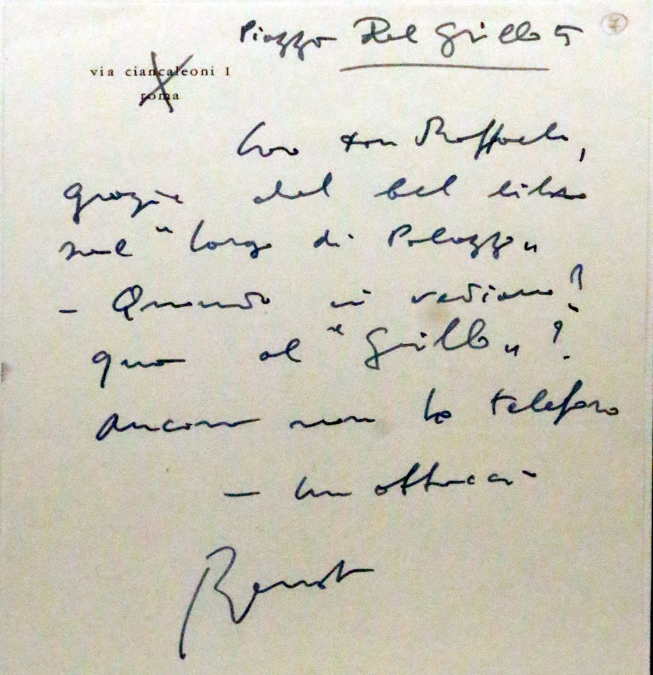 Piazza Del Grillo 5
7
via ciancaleoni 1
roma
Caro don Raffaele,
grazie del bel libro
sul "Largo di Palazzo"
- Quando ci vediamo?
qua al "Grillo"?
Ancora non ho telefono
- un abbraccio -
Renato